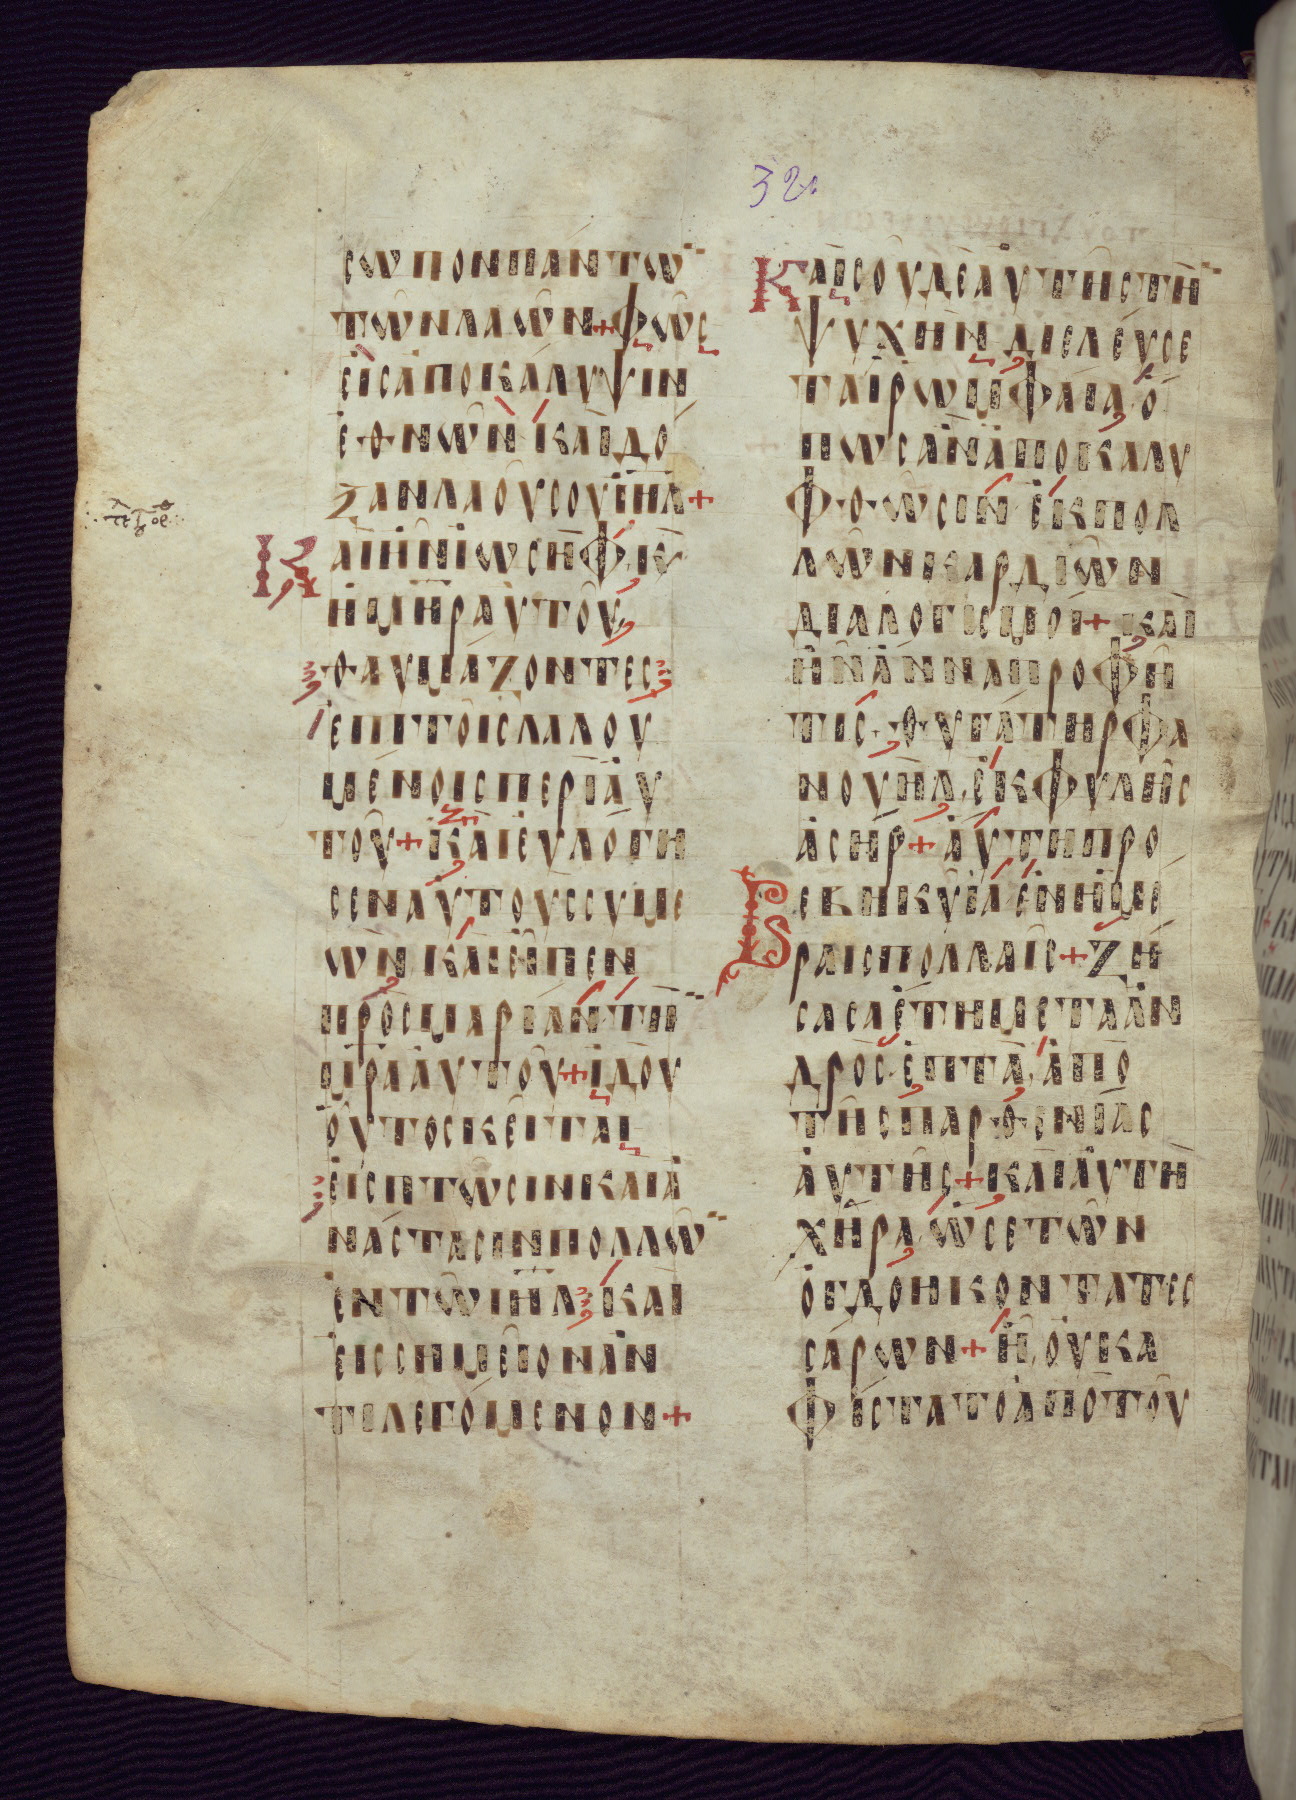 32
σωπονπαντω
τωνλαων+φως
εισαποκαλυψιν
εθνων καιδο
ξανλαουσουιηλ+
Καιηνιωσηφ, κ
ημηραυτου,
θαυμαζοντες
επιτοισλαλου
μενοισπεριαυ
του+καιευλογη
σεναυτουςσυμε
ων, καιειπεν
προσμαριαντη
μραυτου+ιδου
ουτοσκειται
εισπτωσινκαια
ναστασινπολλω
εντωιηλ καὶ
εισσημειοναν
τιλεγομενον+
Καισουδεαυτηστη
ψυχηνδιελευσε
ταιρωμφαια, ο
πωσαναποκαλυ
φθωσιν εκπολ
λωνκαρδιων
διαλογισμοι+και
ηνανναπροφη
τις, θυγατηρφα
νουηλ, εκφυλης
ασηρ+αυτηπρο
Βεβηκυιαενημε
ραισπολλαις+ζη
σασαετημετααν
δροσεπτα, απο
τησπαρθενιας
αυτης+καιαυτη
χηρα, ωσετων
ογδοηκοντατες
σαρων+η, ουκα
φιστατοαποτου